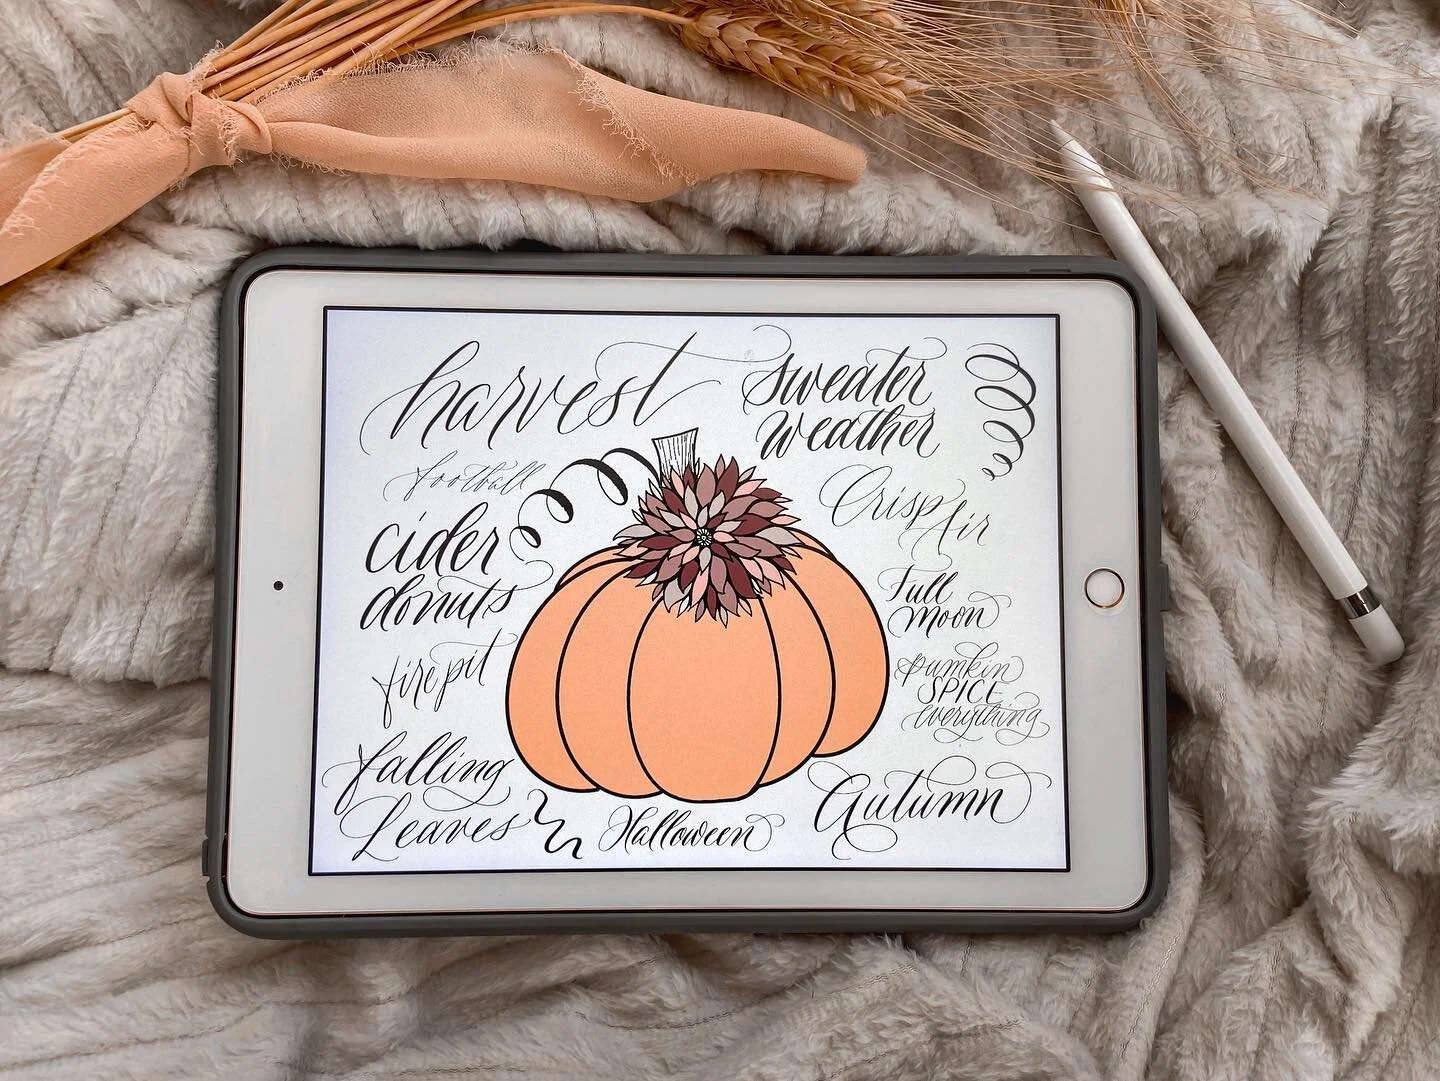 harvest
sweater
weather
football
cider
donuts
Crisp Air
Full
Moon
firepit
pumkin
SPICE
everything
falling
Leaves
Halloween
Autumn